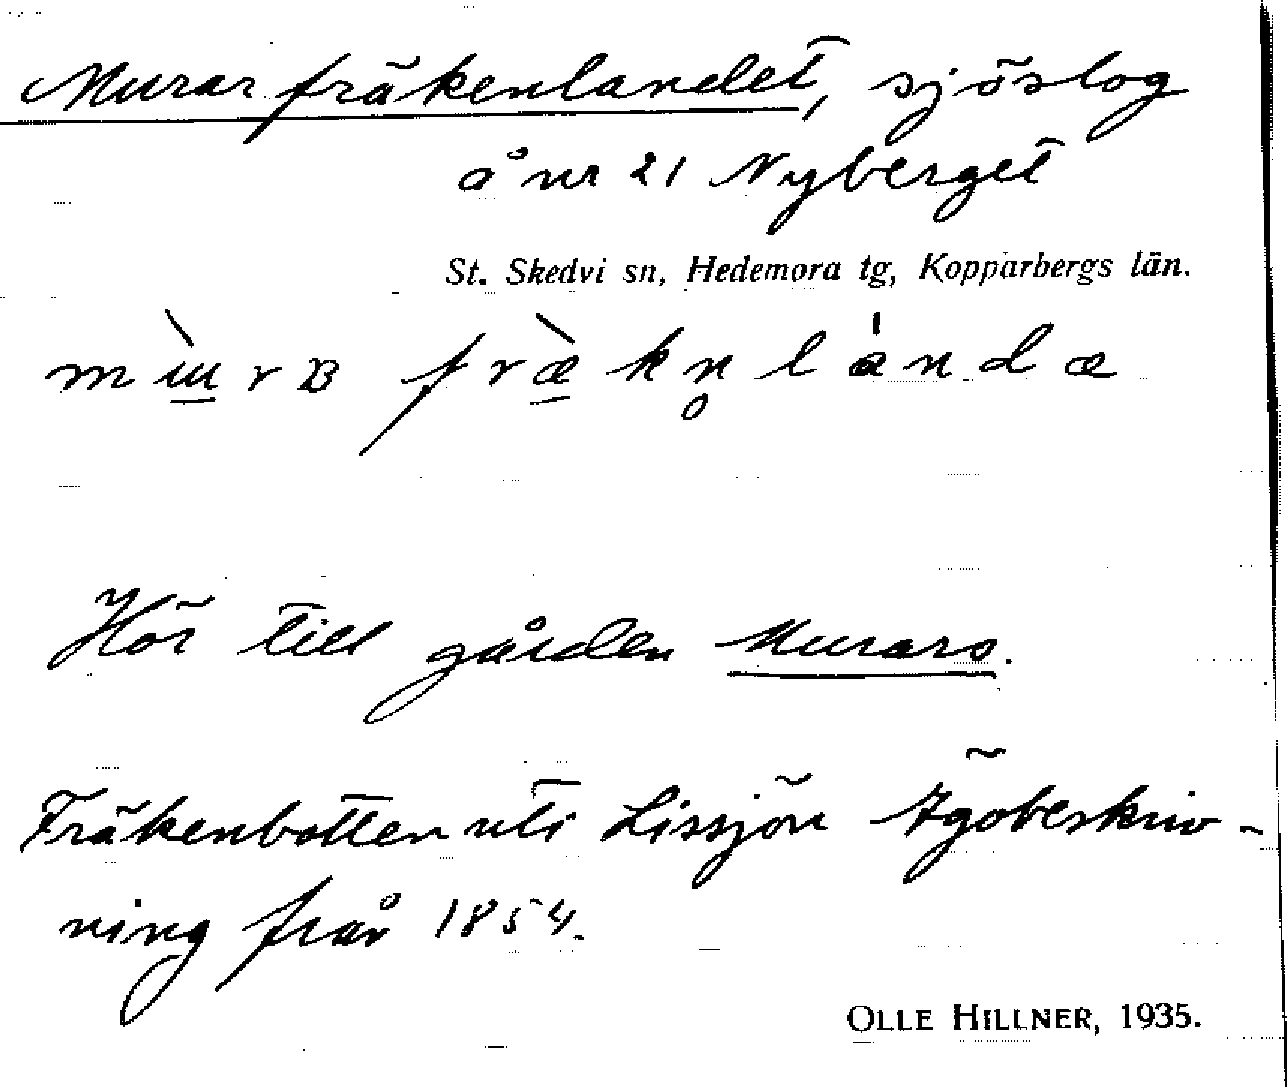 Murarfräkenlandet, sjöslog
å nr 21 Nyberget
St. Skedvi sn, Hedemora tg, Kopparbergs län.
Hör till gården Murars.
Fräkenbotten uti Lissjön Ägobeskriv-
ning från 1854.
OLLE HILLNER, 1935.